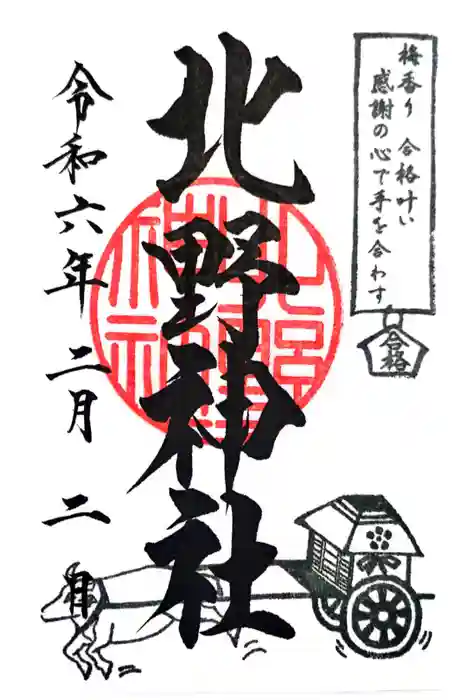 梅香り 合格叶い
感謝の心で手を合わす
合格
北野神社
北野神社
令和六年 二月 二日